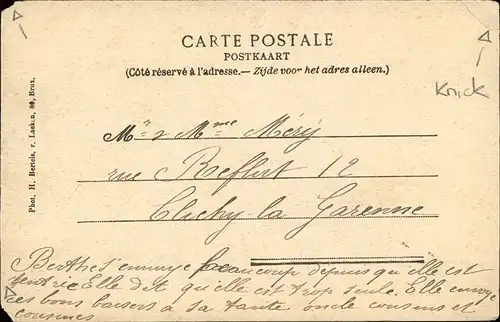 CARTE POSTALE
POSTKAART
(Côté réservé à l'adresse.— Zijde voor het adres alleen.)
Knick
Phot. H. Bertels, r. Laeken, 80, Brux.
Mr & Mme Méry
rue 12
Clichy la Garenne
Berthe s'ennuye beaucoup depuis qu'elle est
rentrée Elle dit qu'elle est trop seule. Elle envoye
ces bons baisers à sa tante oncle cousins et
cousines